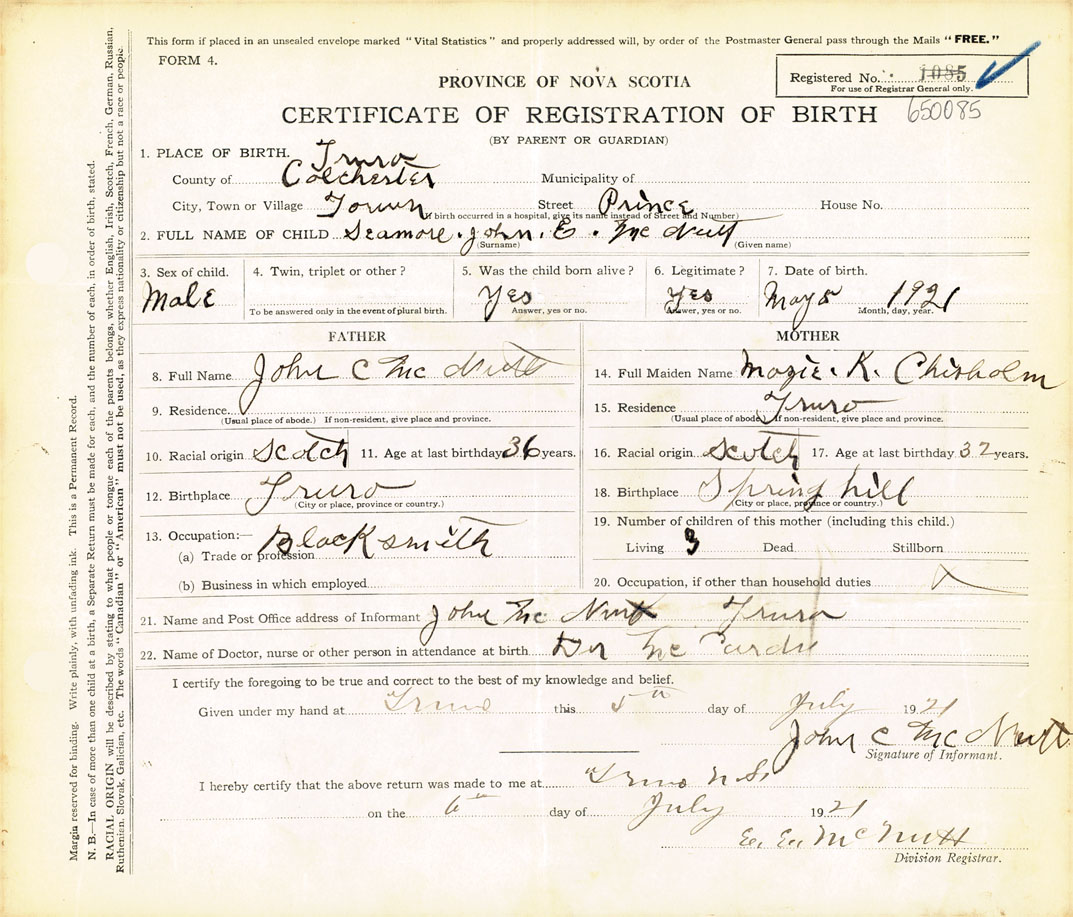 This form if placed in an unsealed envelope marked "Vital Statistics" and properly addressed will, by order of the Postmaster General pass through the Mails "FREE."
FORM 4.
Registered No. 1085
For use of Registrar General only.
650085
PROVINCE OF NOVA SCOTIA
CERTIFICATE OF REGISTRATION OF BIRTH
(BY PARENT OR GUARDIAN)
1. PLACE OF BIRTH. Truro
County of Colchester Municipality of
City, Town or Village Town Street Prince House No.
(If birth occurred in a hospital, give its name instead of Street and Number)
2. FULL NAME OF CHILD Seamore. John. E. Mc Nutt
(Surname) (Given name)
3. Sex of child. 4. Twin, triplet or other? 5. Was the child born alive? 6. Legitimate? 7. Date of birth.
Male Yes Yes May 5 1921
To be answered only in the event of plural birth. Answer, yes or no. Answer, yes or no. Month, day, year.
FATHER MOTHER
8. Full Name John C Mc Nutt 14. Full Maiden Name Mazie. K. Chisholm
9. Residence 15. Residence Truro
(Usual place of abode.) If non-resident, give place and province. (Usual place of abode.) If non-resident, give place and province.
10. Racial origin Scotch 11. Age at last birthday 36 years. 16. Racial origin Scotch 17. Age at last birthday 32 years.
12. Birthplace Truro 18. Birthplace Spring hill
(City or place, province or country.) (City or place, province or country.)
13. Occupation:— 19. Number of children of this mother (including this child.)
(a) Trade or profession Blacksmith Living 3 Dead Stillborn
(b) Business in which employed 20. Occupation, if other than household duties
21. Name and Post Office address of Informant John Mc Nutt Truro
22. Name of Doctor, nurse or other person in attendance at birth Dr Mc Curdie
I certify the foregoing to be true and correct to the best of my knowledge and belief.
Given under my hand at Truro this 5th day of July 1921
John C Mc Nutt
Signature of Informant.
I hereby certify that the above return was made to me at Truro N.S.
on the 6th day of July 1921
McNutt
Division Registrar.
Margin reserved for binding. Write plainly, with unfading ink. This is a Permanent Record.
N. B.—In case of more than one child at a birth, a Separate Return must be made for each, and the number of each, in order of birth, stated.
RACIAL ORIGIN will be described by stating to what people or tongue each of the parents belongs, whether English, Irish, Scotch, French, German, Russian,
Ruthenian, Slovak, Galician, etc. The words "Canadian" or "American" must not be used, as they express nationality or citizenship but not a race or people.